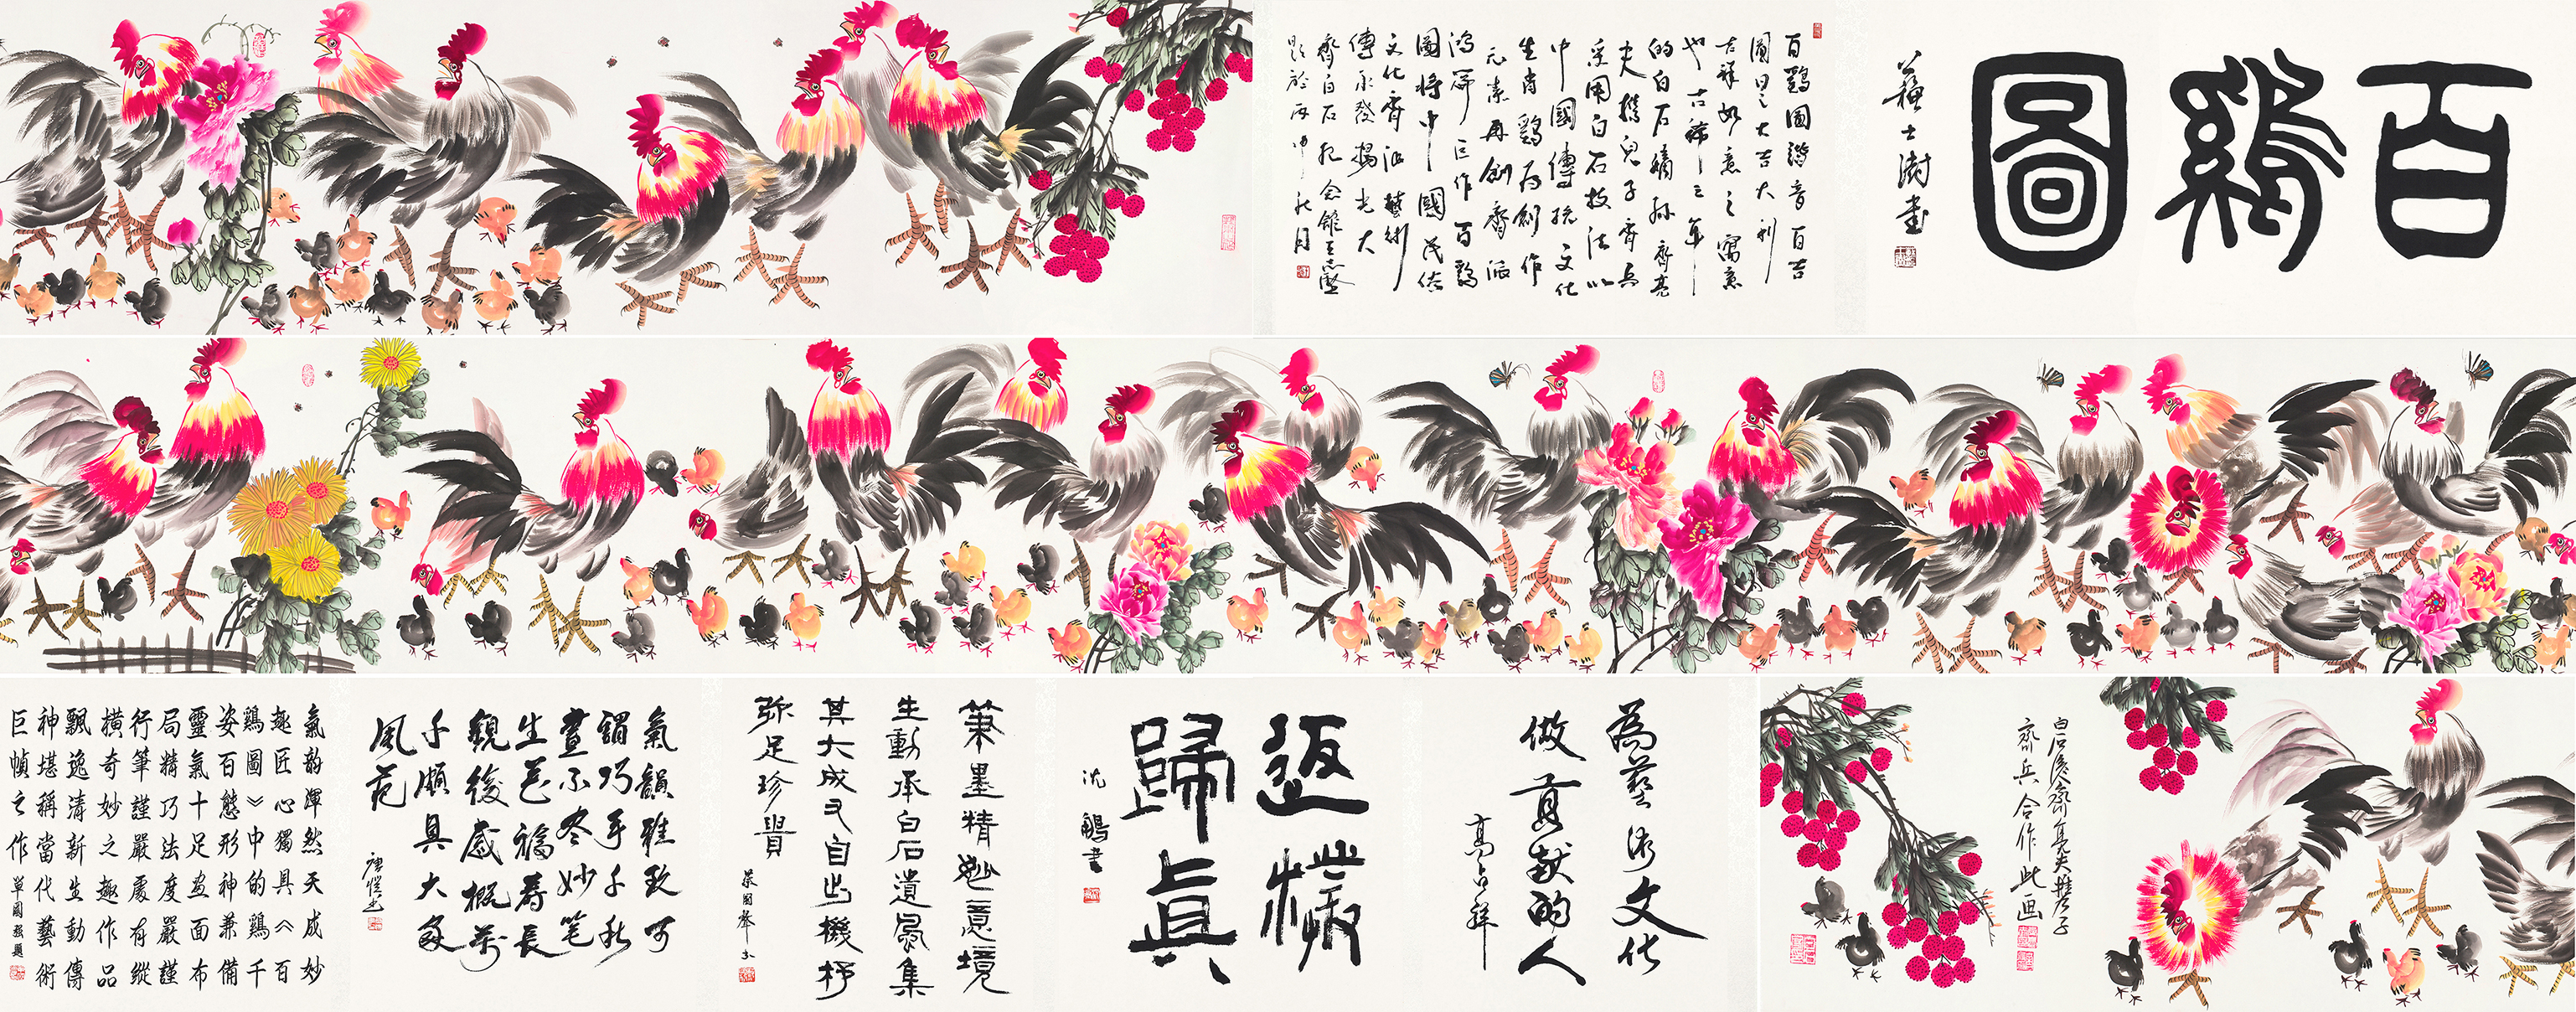 百鷄圖
蘇士澍書
百鷄圖諧音百吉
圖日之大吉大利
吉祥如意之寓意
也古稀之年
的白石嫡孫齊亮
夫攜兒子齊兵
采用白石技法以
中國傳統文化
生肖鷄為創作
元素再創齊派
鴻篇巨作百鷄
圖將中國民俗
文化齊派藝術
傳承發揚光大
齊白石紀念館王
題於丙申秋月
白石後人齊亮夫攜子
齊兵合作此画
為藝術文化
做貢献的人
高占祥
返樸
歸真
沈鵬書
筆墨精妙意境
生動承白石遺風集
其大成又自出機杼
弥足珍貴
氣韻雅致可
謂巧手千秋
畫不冬妙笔
生花福壽長
觀後感概萬
千頗具大家
風范
唐愷書
氣韵渾然天成妙
趣匠心獨具《百
鷄圖》中的鷄千
姿百態形神兼備
靈氣十足畫面布
局精巧法度嚴謹
行筆謹嚴處有縱
横奇妙之趣作品
飄逸清新生動傳
神堪稱當代藝術
巨幀之作單國强題